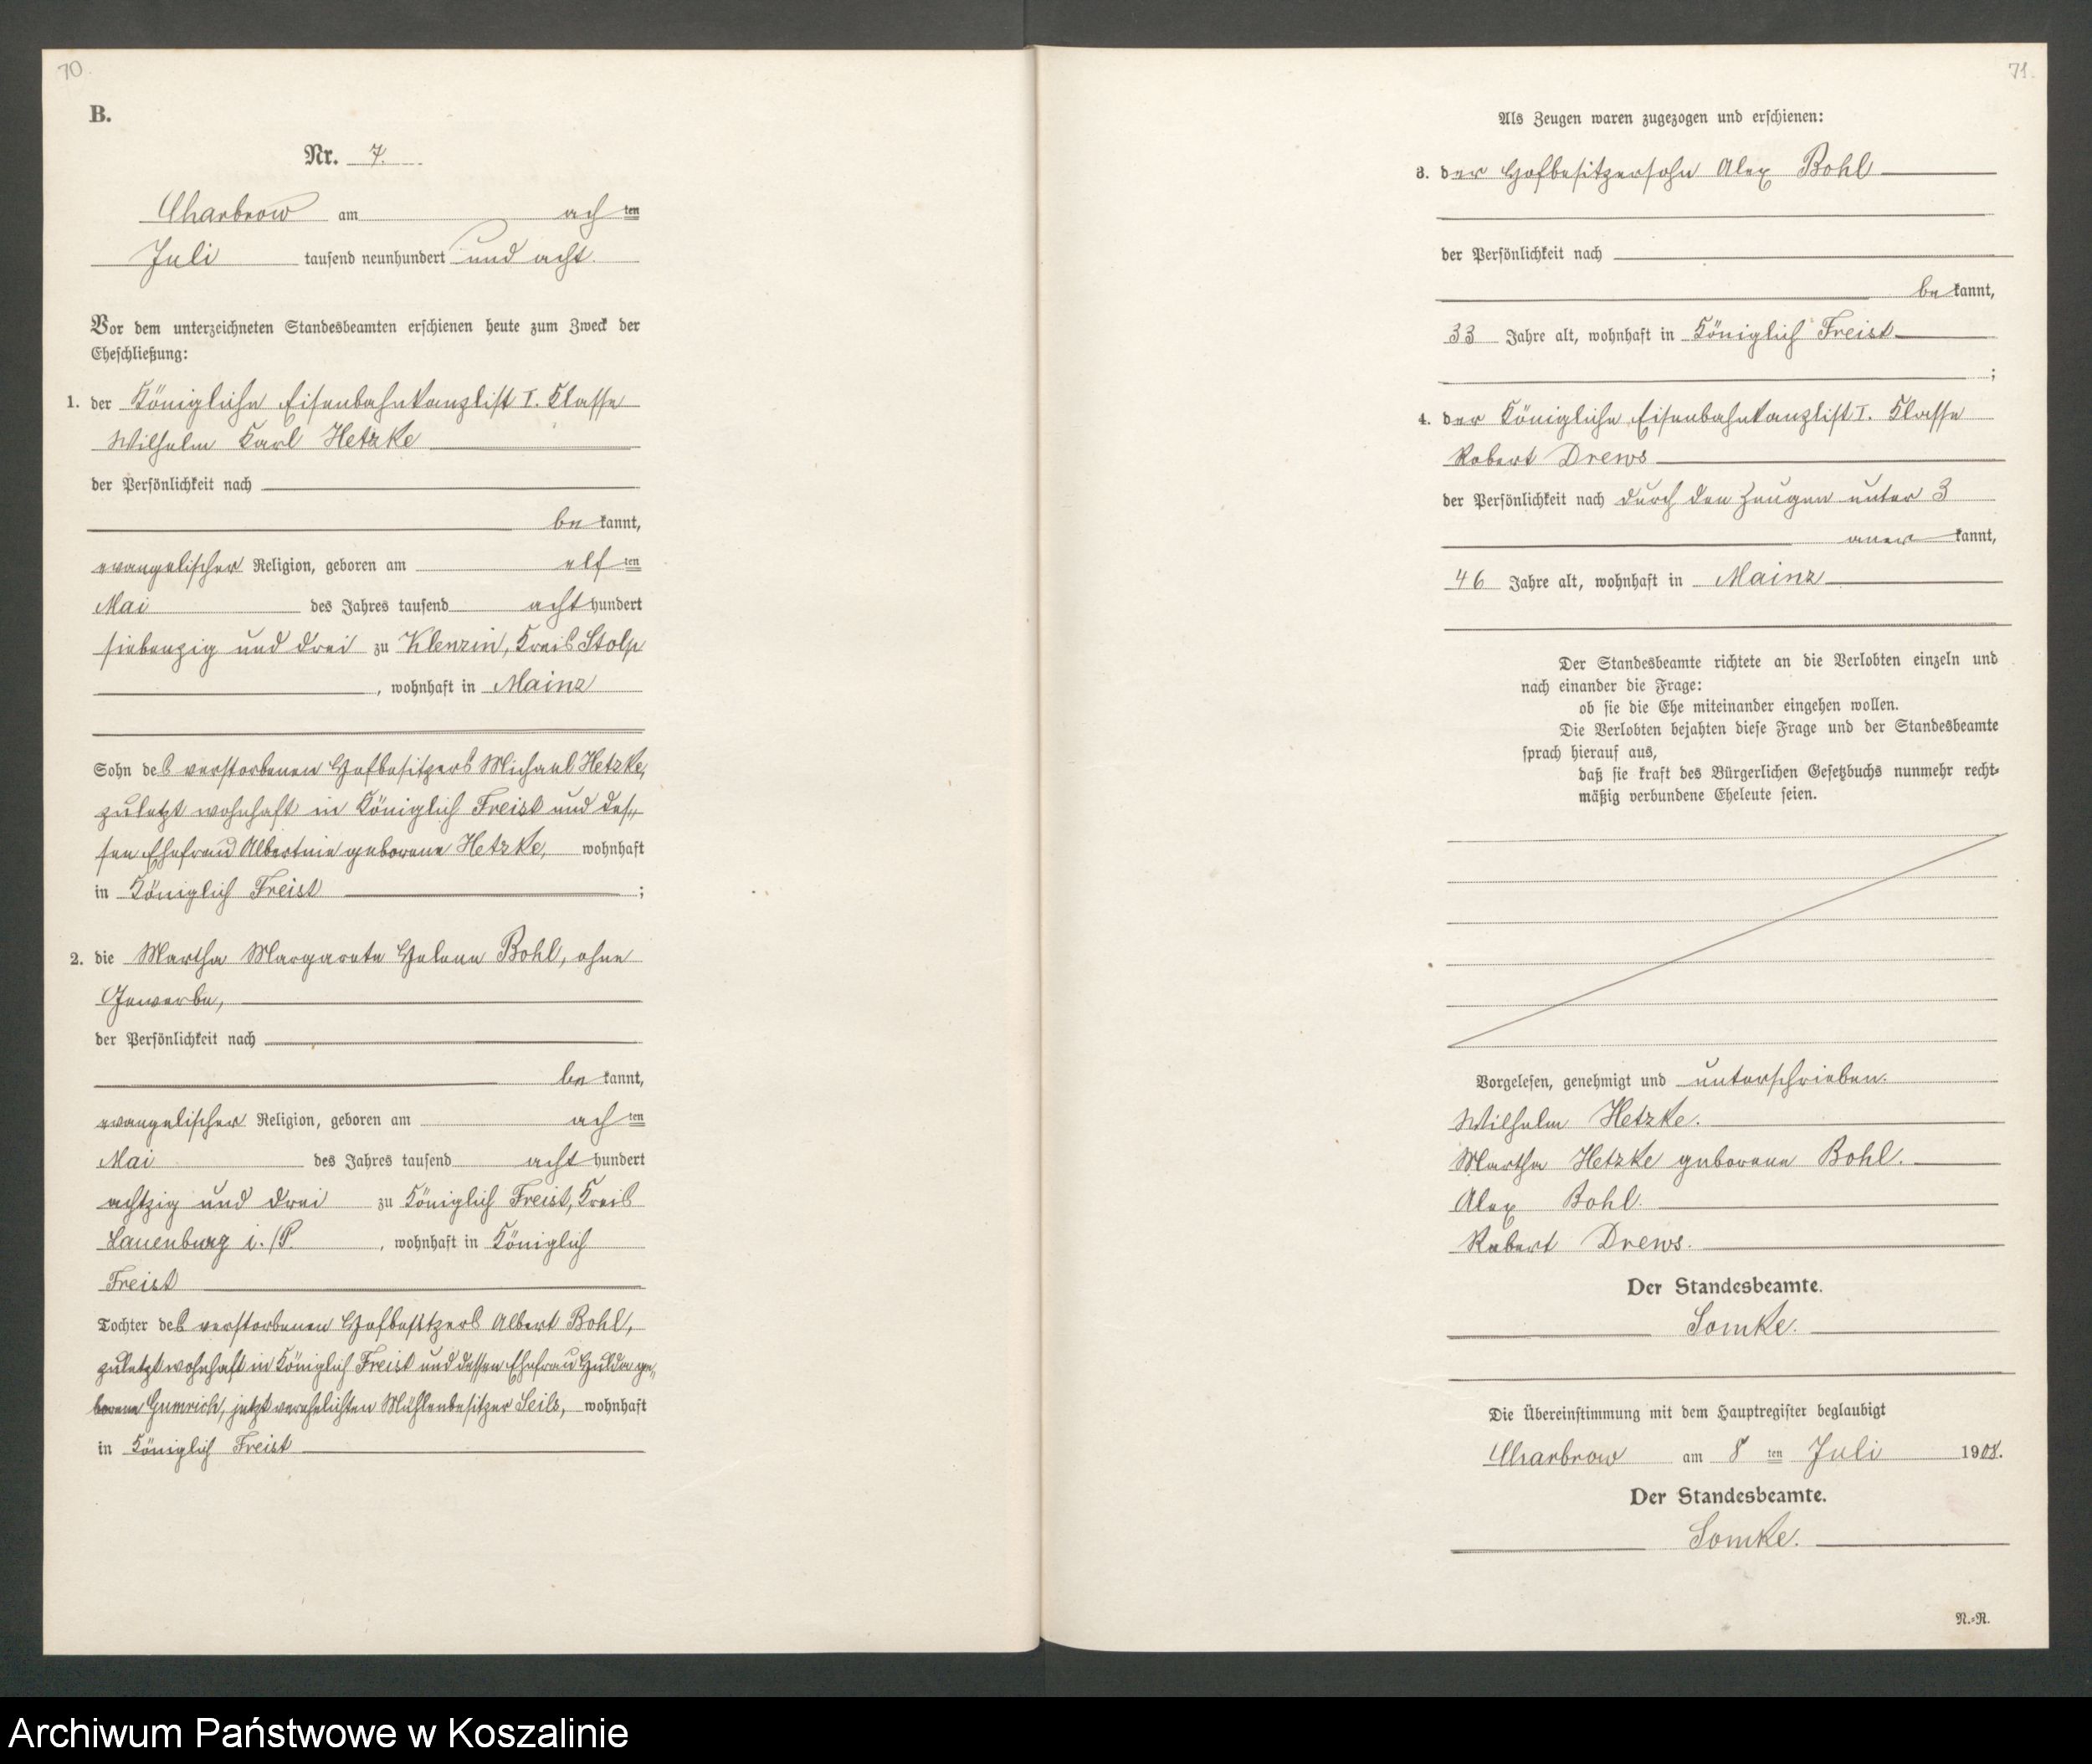 70.
B.
Nr. 7.
Charbrow am achten
Juli tausend neunhundert und acht.
Vor dem unterzeichneten Standesbeamten erschienen heute zum Zweck der
Eheschließung:
1. der Königliche Eisenbahnkanzlist I. Klasse
Wilhelm Karl Hetzke
der Persönlichkeit nach
bekannt,
evangelischer Religion, geboren am elften
Mai des Jahres tausend achthundert
siebenzig und drei zu Klenzin, Kreis Stolp
, wohnhaft in Mainz
Sohn des verstorbenen Hofbesitzers Michael Hetzke,
zuletzt wohnhaft in Königlich Freist und des„
sen Ehefrau Albertine geborene Hetzke, wohnhaft
in Königlich Freist ;
2. die Martha Margarete Helene Bohl, ohne
Gewerbe,
der Persönlichkeit nach
bekannt,
evangelischer Religion, geboren am achten
Mai des Jahres tausend achthundert
achtzig und drei zu Königlich Freist, Kreis
Lauenburg i./P. , wohnhaft in Königlich
Freist
Tochter des verstorbenen Hofbesitzers Albert Bohl,
zuletzt wohnhaft in Königlich Freist und dessen Ehefrau Hulda ge„
borene Gumrich, jetzt verehelichten Mühlenbesitzer Seils, wohnhaft
in Königlich Freist
71.
Als Zeugen waren zugezogen und erschienen:
3. der Hofbesitzersohn Alex Bohl
der Persönlichkeit nach
bekannt,
33 Jahre alt, wohnhaft in Königlich Freist
;
4. der Königliche Eisenbahnkanzlist I. Klasse
Robert Drews
der Persönlichkeit nach durch den Zeugen unter 3
anerkannt,
46 Jahre alt, wohnhaft in Mainz
Der Standesbeamte richtete an die Verlobten einzeln und
nach einander die Frage:
ob sie die Ehe miteinander eingehen wollen.
Die Verlobten bejahten diese Frage und der Standesbeamte
sprach hierauf aus,
daß sie kraft des Bürgerlichen Gesetzbuchs nunmehr recht-
mäßig verbundene Eheleute seien.
Vorgelesen, genehmigt und unterschrieben.
Wilhelm Hetzke.
Martha Hetzke geborene Bohl.
Alex Bohl.
Robert Drews.
Der Standesbeamte.
Somke.
Die Übereinstimmung mit dem Hauptregister beglaubigt
Charbrow am 8ten Juli 1908.
Der Standesbeamte.
Somke.
N.-R.
Archiwum Państwowe w Koszalinie